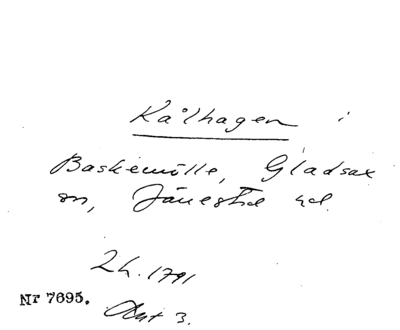 Kålhagen i
Baskemölle, Gladsax
sn, Järrestad hd.
2h. 1791
Nr 7695. Akt 3.